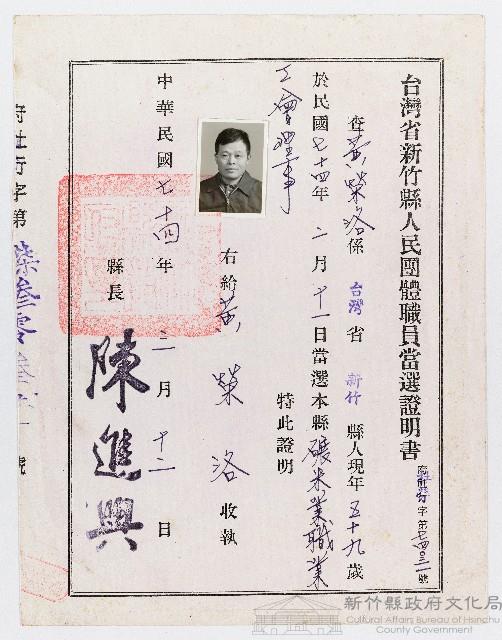 台灣省新竹縣人民團體職員當選證明書
字第七四〇三一號
查黃榮洛係台灣省新竹縣人現年五十九歲
於民國七十四年二月十一日當選本縣碾米業職業
工會理事
特此證明
右給黃榮洛收執
縣長陳進興
中華民國七十四年三月十二日
府社行字第柒參零參
號
新竹縣政府文化局
Cultural Affairs Bureau of Hsinchu
County Government